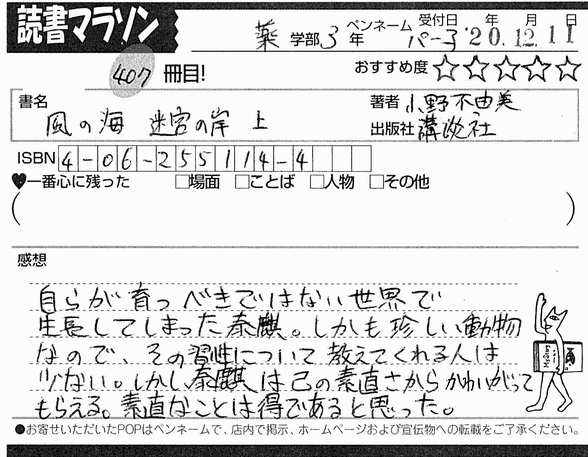 読書マラソン
薬 学部 3 年 ペンネーム パー子 受付日 '20年 12月 11日
407 冊目!
おすすめ度 ☆☆☆☆☆
書名 風の海 迷宮の岸 上
著者 小野不由美
出版社 講談社
ISBN 4-06-255114-4
♥一番心に残った □場面 □ことば □人物 □その他
( )
感想
自らが育つべきではない世界で
生長してしまった泰麒。しかも珍しい動物
なので、その習性について教えてくれる人は
少ない。しかし泰麒は己の素直さからかわいがって
もらえる。素直なことは得であると思った。
●お寄せいただいたPOPはペンネームで、店内で掲示、ホームページおよび宣伝物への転載をご了承ください。